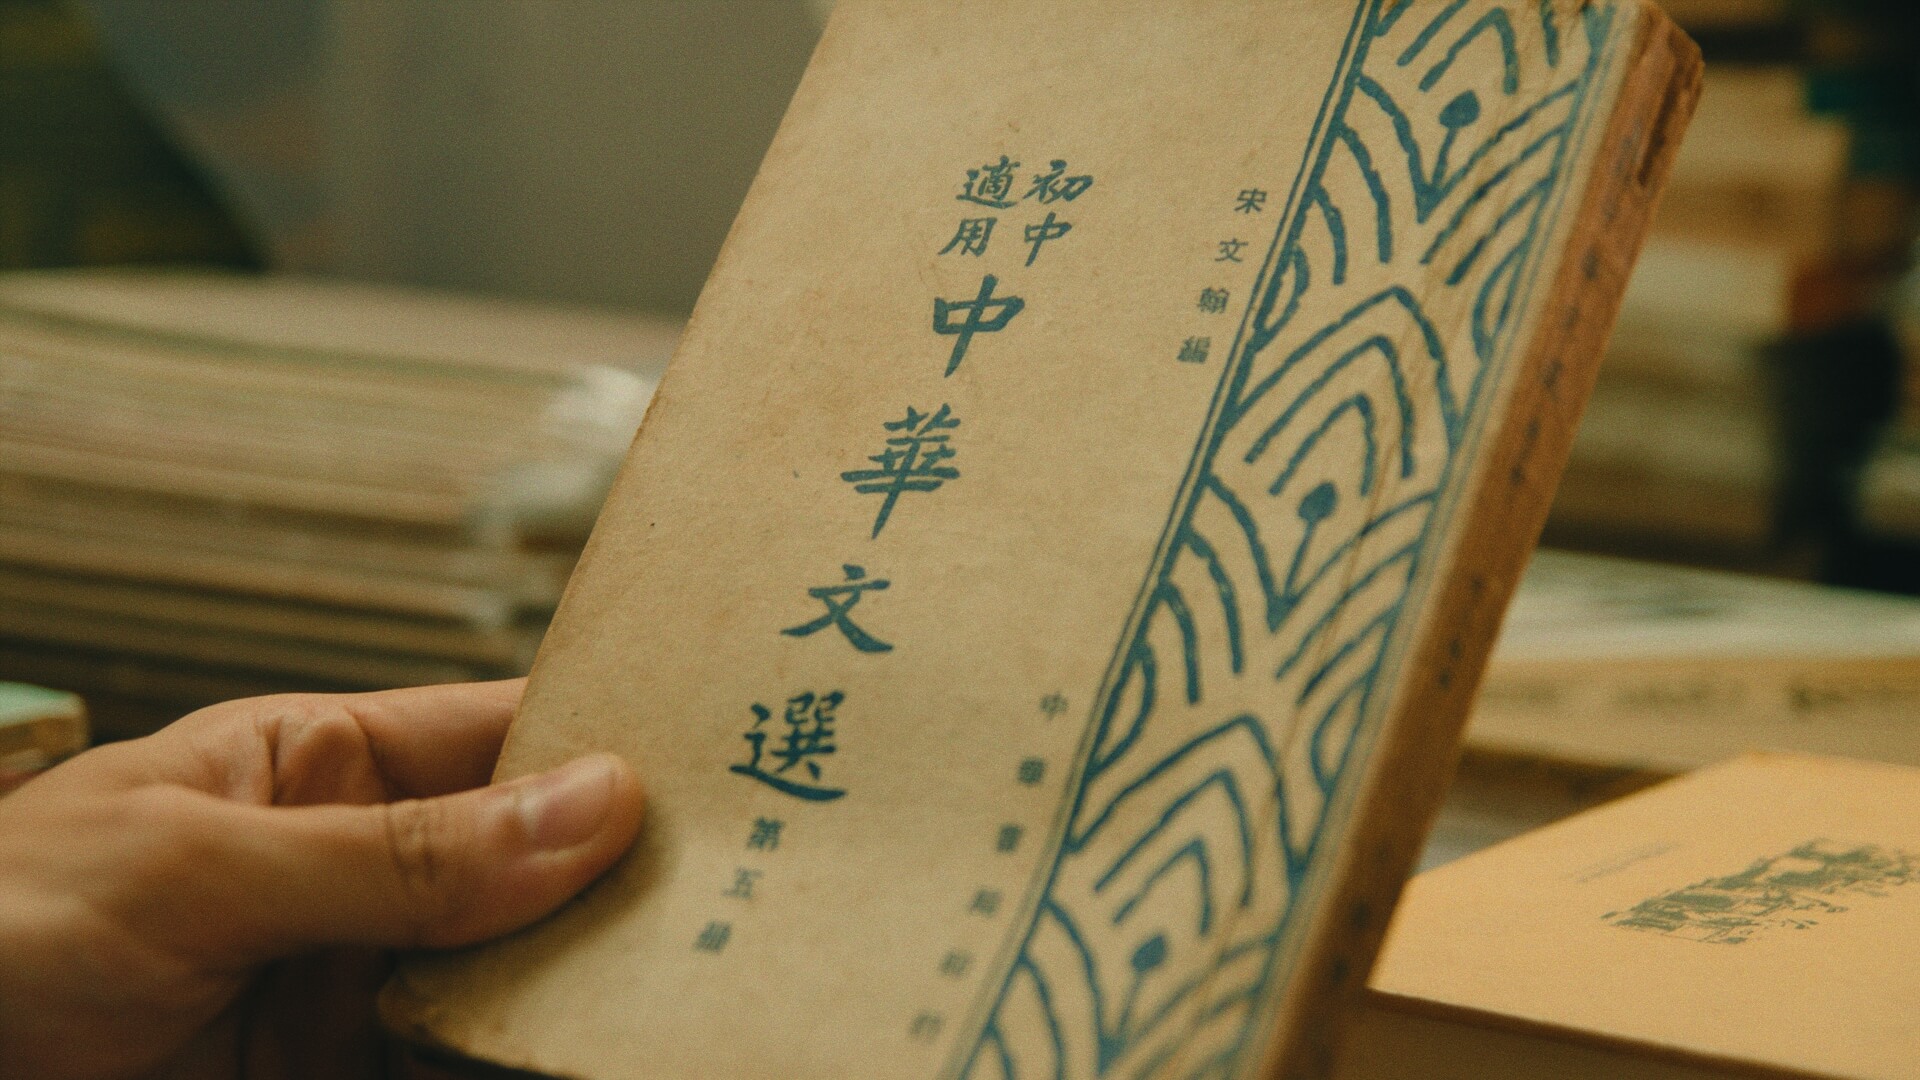 宋文翰編
初中
適用
中華文選
第五冊
中華書局印行